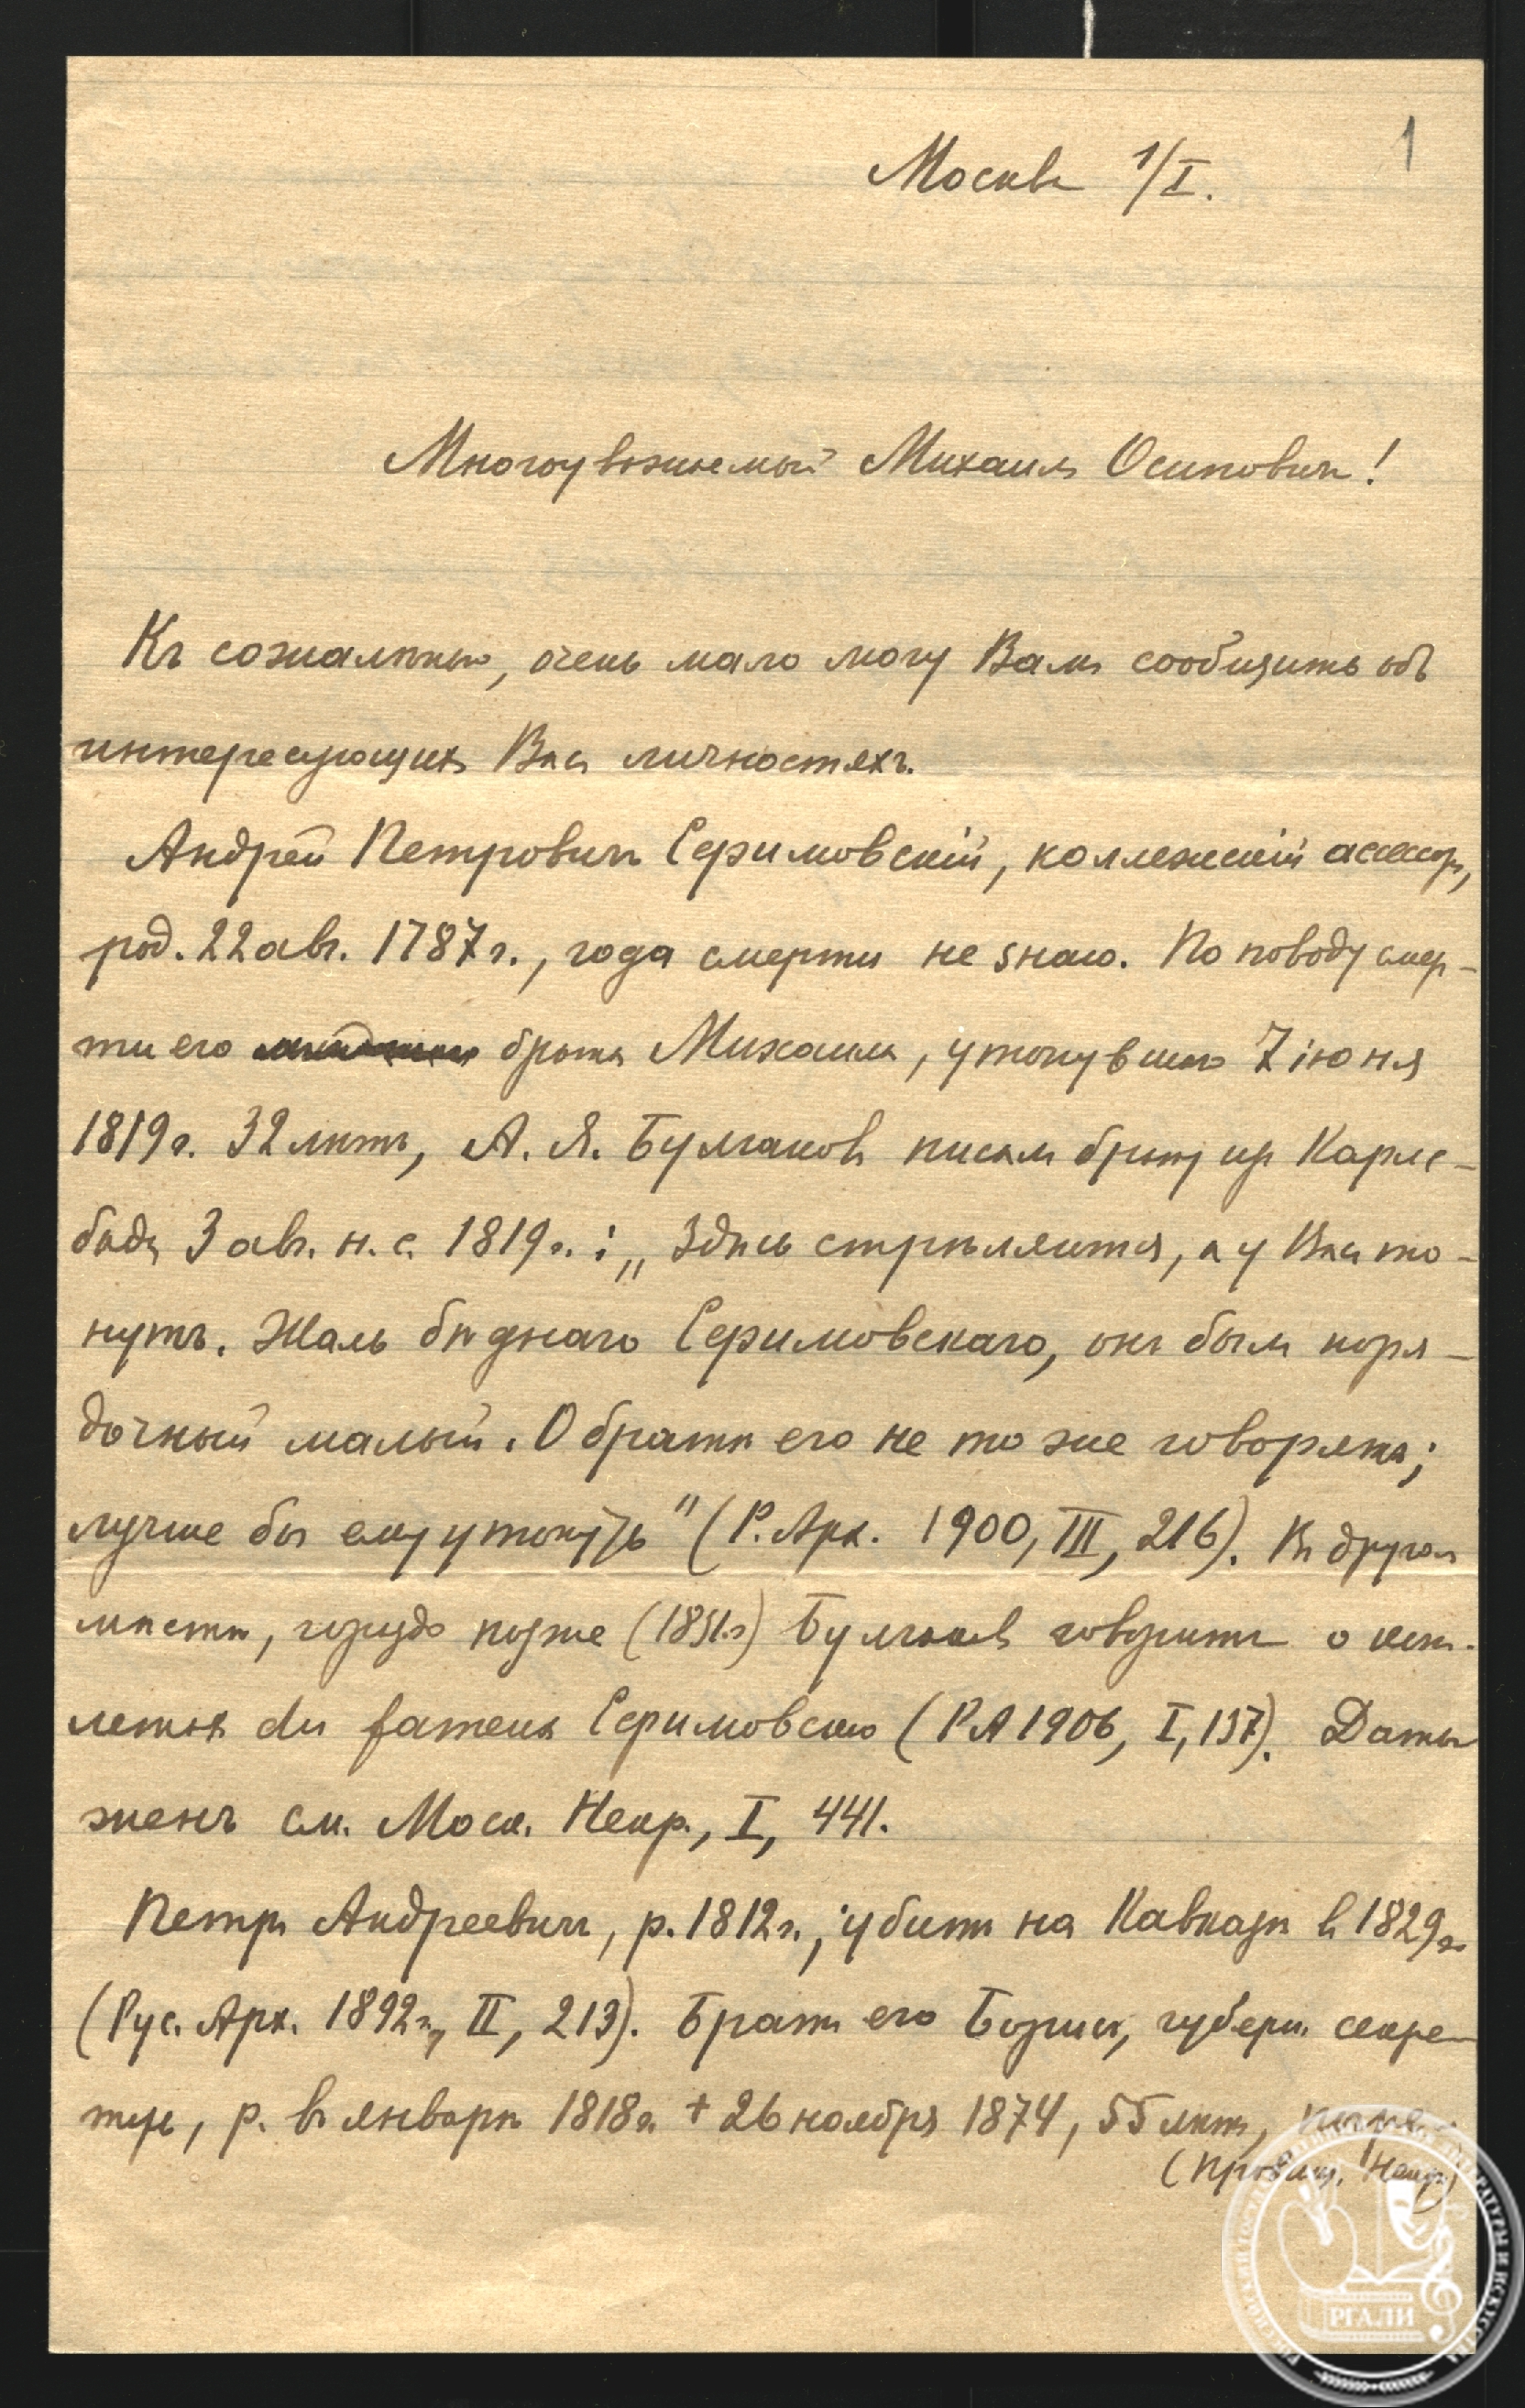 1
Москва 1/I.
Многоуважаемый Михаилъ Осиповичъ!
Къ сожалѣнію, очень мало могу Вамъ сообщить объ
интересующихъ Васъ личностяхъ.
Андрей Петровичъ Сезимовскій, коллежскій ассесоръ,
род. 22 авг. 1787 г., года смерти не знаю. По поводу смер-
ти его брата Михаила, утонувшаго 7 іюня
1819 г. 32 лѣтъ, А. Я. Булгаковъ писалъ брату изъ Карлс-
бада 3 авг. н. с. 1819 г.: „Здѣсь стрѣляются, а у Васъ то-
нутъ. Жаль бѣднаго Сезимовскаго, онъ былъ поря-
дочный малый. О братѣ его не то же говорятъ;
лучше бы ему утонуть" (Р. Арх. 1900, III, 216). Въ другомъ
мѣстѣ, гораздо позже (1831 г) Булгаковъ говоритъ о
du fameux Сезимовскаго (РА 1906, I, 137). Даты
женъ см. Моск. Некр., I, 441.
Петръ Андреевичъ, р. 1812 г., убитъ на Кавказѣ въ 1829 г.
(Рус. Арх. 1892 г., II, 213). Братъ его Борисъ, губерн. секре-
тарь, р. въ январѣ 1818 г. + 26 ноября 1874, 55 лѣтъ,
(Провинц. Некр.)
РГАЛИ